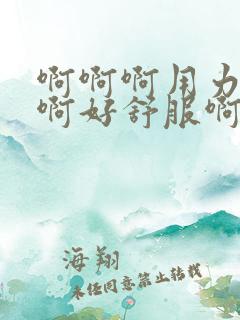 啊啊啊用力
啊好舒服啊
海翔
未经同意禁止转载